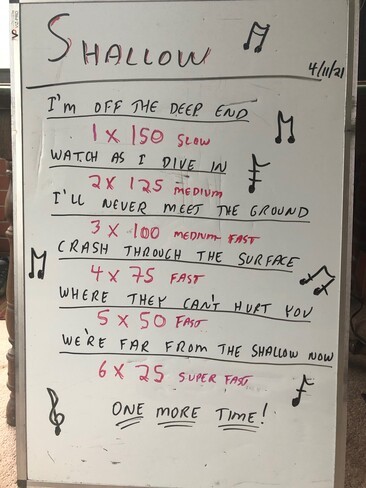 SHALLOW
4/11/21
I'M OFF THE DEEP END
1 X 150 SLOW
WATCH AS I DIVE IN
2 X 125 MEDIUM
I'LL NEVER MEET THE GROUND
3 X 100 MEDIUM FAST
CRASH THROUGH THE SURFACE
4 X 75 FAST
WHERE THEY CAN'T HURT YOU
5 X 50 FAST
WE'RE FAR FROM THE SHALLOW NOW
6 X 25 SUPER FAST
ONE MORE TIME!